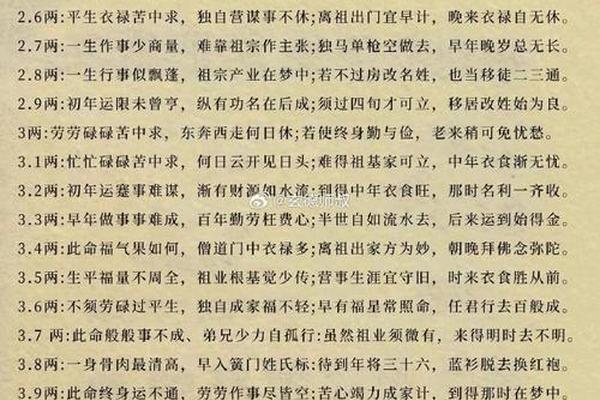 2.6两:平生衣禄苦中求，独自营谋事不休;离祖出门宜早计，晚来衣禄自无休。
2.7两:一生作事少商量，难靠祖宗作主张;独马单枪空做去，早年晚岁总无长。
2.8两:一生行事似飘蓬，祖宗产业在梦中;若不过房改名姓，也当移徒二三通。
2.9两:初年运限未曾亨，纵有功名在后成;须过四旬才可立，移居改姓始为良。
3两:劳劳碌碌苦中求，东奔西走何日休;若使终身勤与俭，老来稍可免忧愁。
3.1两:忙忙碌碌苦中求，何日云开见日头;难得祖基家可立，中年衣食渐无忧。
3.2两:初年运蹇事难谋，渐有财源如水流;到得中年衣食旺，那时名利一齐收。
@玄德师叔
3.3两:早年做事事难成，百年勤劳枉费心;半世自如流水去，后来运到始得金。
3.4两:此命福气果如何，僧道门中衣禄多;离祖出家方为妙，朝晚拜佛念弥陀。
3.5两:生平福量不周全，祖业根基觉少传;营事生涯宜守旧，时来衣食胜从前。
3.6两:不须劳碌过平生，独自成家福不轻;早有福星常照命，任君行去百般成。
3.7 两:此命般般事不成、弟兄少力自孤行:虽然祖业须微有，来得明时去不明。
3.8两:一身骨肉最清高，早入簧门姓氏标:待到年将三十六，蓝衫脱去换红袍。
3.9两:此命终身运不通，劳劳作事尽皆空;苦心竭力成家计，到得那时在梦中。